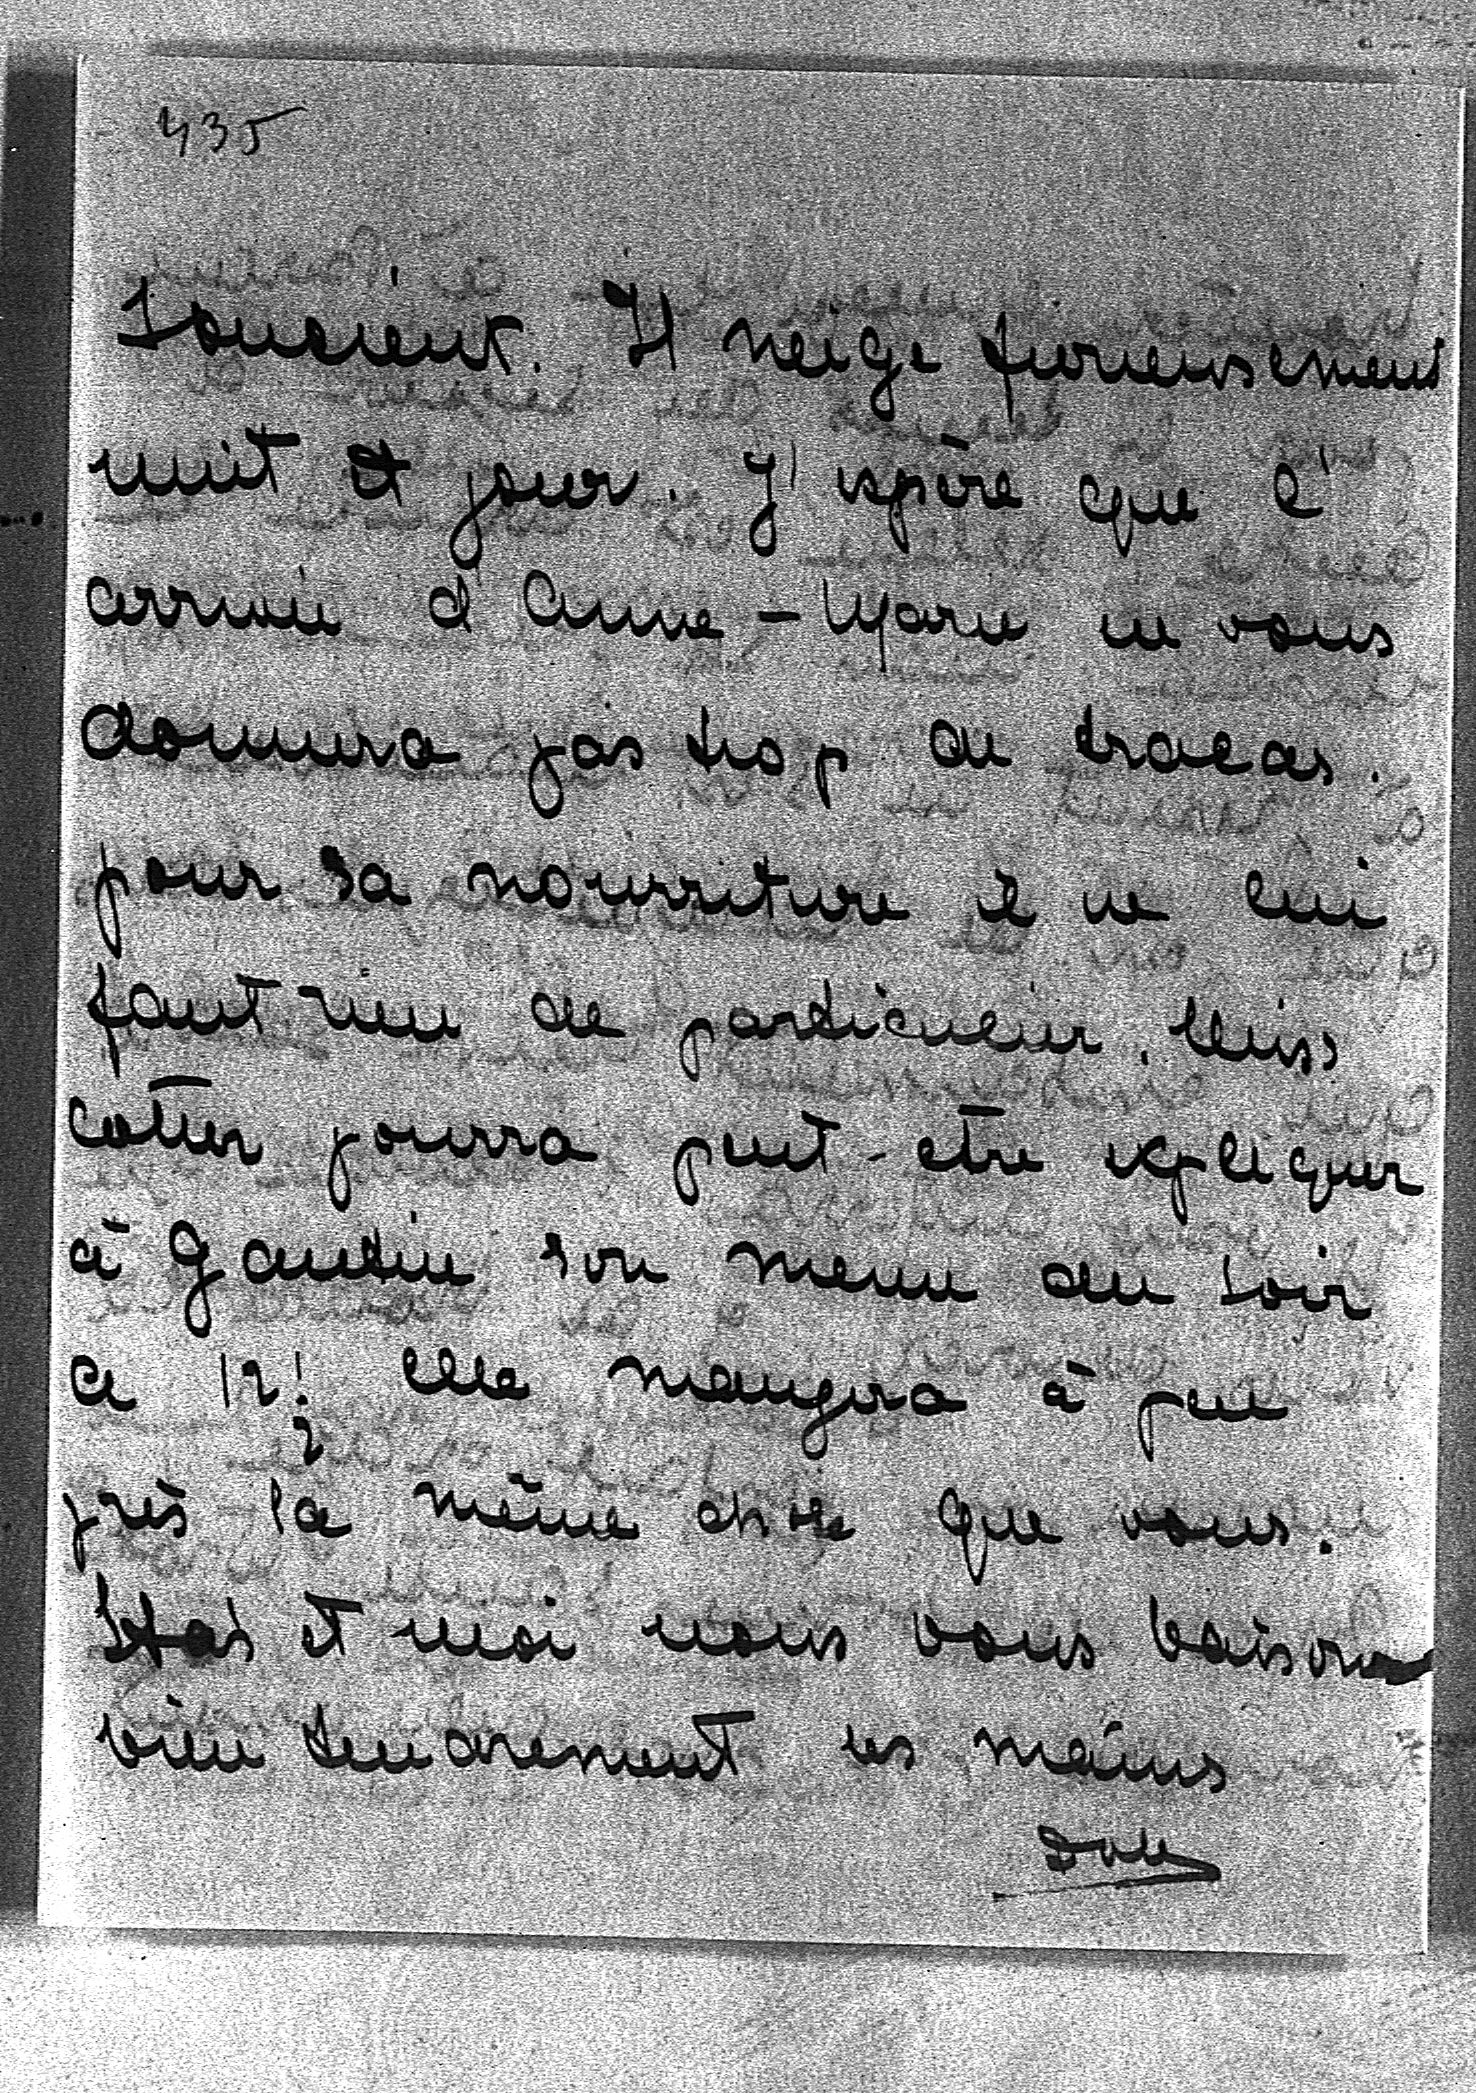 435
soucient. Il neige furieusement
nuit et jour. J'espère que l'
arrivée d'Anne-Marie ne vous
donnera pas trop de tracas.
pour sa nourriture il ne lui
faut rien de particulier. Miss
pourra peut-être expliquer
à son menu du soir
elle mangera à peu
près la même chose que vous.
Stas et moi nous vous baisons
bien tendrement les mains